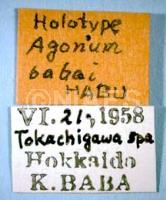 Holotype
Agonum
babai
HABU
VI. 21, 1958
Tokachigawa spa
Hokkaido
K. BABA